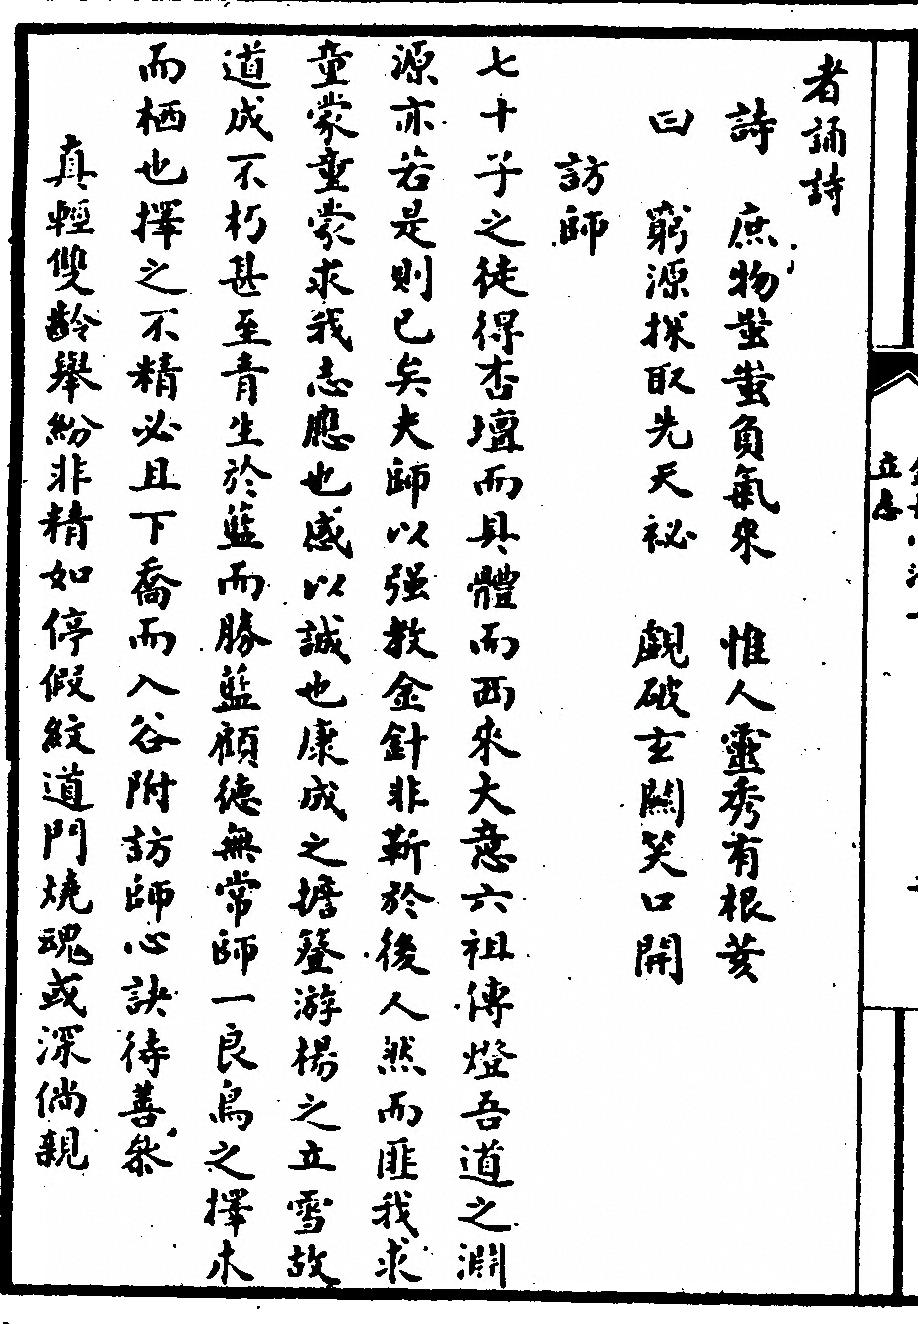 者誦詩
詩　庶物蚩蚩負氣來　惟人靈秀有根荄
曰　窮源探取先天祕　覷破玄關笑口開
訪師
七十子之徒得杏壇而具體而西來大意六祖傳燈吾道之淵
源亦若是則已矣夫師以强教金針非靳於後人然而匪我求
童蒙童蒙求我志應也感以誠也康成之擔簦游楊之立雪故
道成不朽甚至青生於藍而勝藍顧德無常師一良鳥之擇木
而栖也擇之不精必且下喬而入谷附訪師心訣待善參
真輕雙齡舉紛非精如停假紋道門燒魂或深倘親
立志